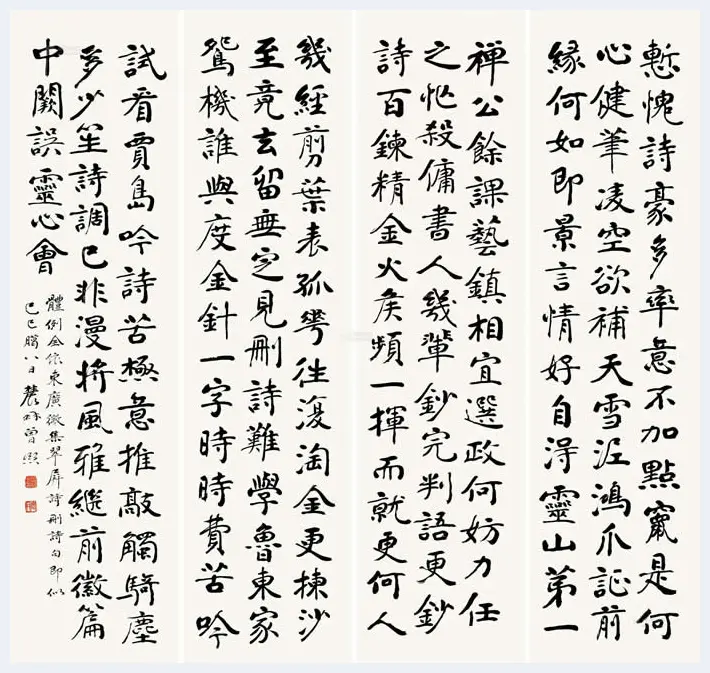 慙愧詩豪多率意不加點竄是何
心健筆凌空欲補天雪泥鴻爪証前
緣何如即景言情好自淂靈山第一
禪公餘課藝鎮相宜選政何妨力任
之忙殺傭書人幾輩鈔完判語更鈔
詩百鍊精金火矦頻一揮而就更何人
幾經剪葉表孤往復淘金更揀沙
至竟去留無定見刪詩難學魯東家
鴛機誰與度金針一字時時費苦吟
試看賈島吟詩苦極意推敲觸騎塵
多少笙詩調已非漫將風雅繼前徽篇
中闕誤靈心會
體例東廣徵集翠屏詩刪詩句即似
己巳臈八日農髯曾熙